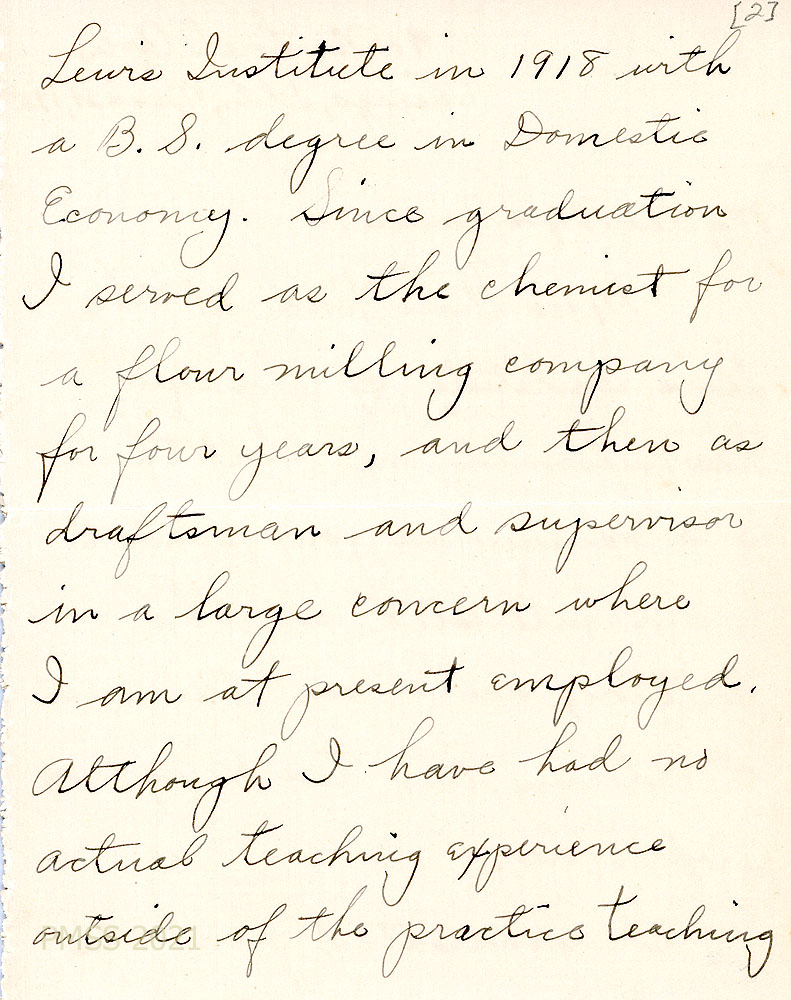 [2]
Lewis Institute in 1918 with
a B. S. degree in Domestic
Economy. Since graduation
I served as the chemist for
a flour milling company
for four years, and then as
draftsman and supervisor
in a large concern where
I am at present employed.
Although I have had no
actual teaching experience
outside of the practice teaching
PMSS 2021